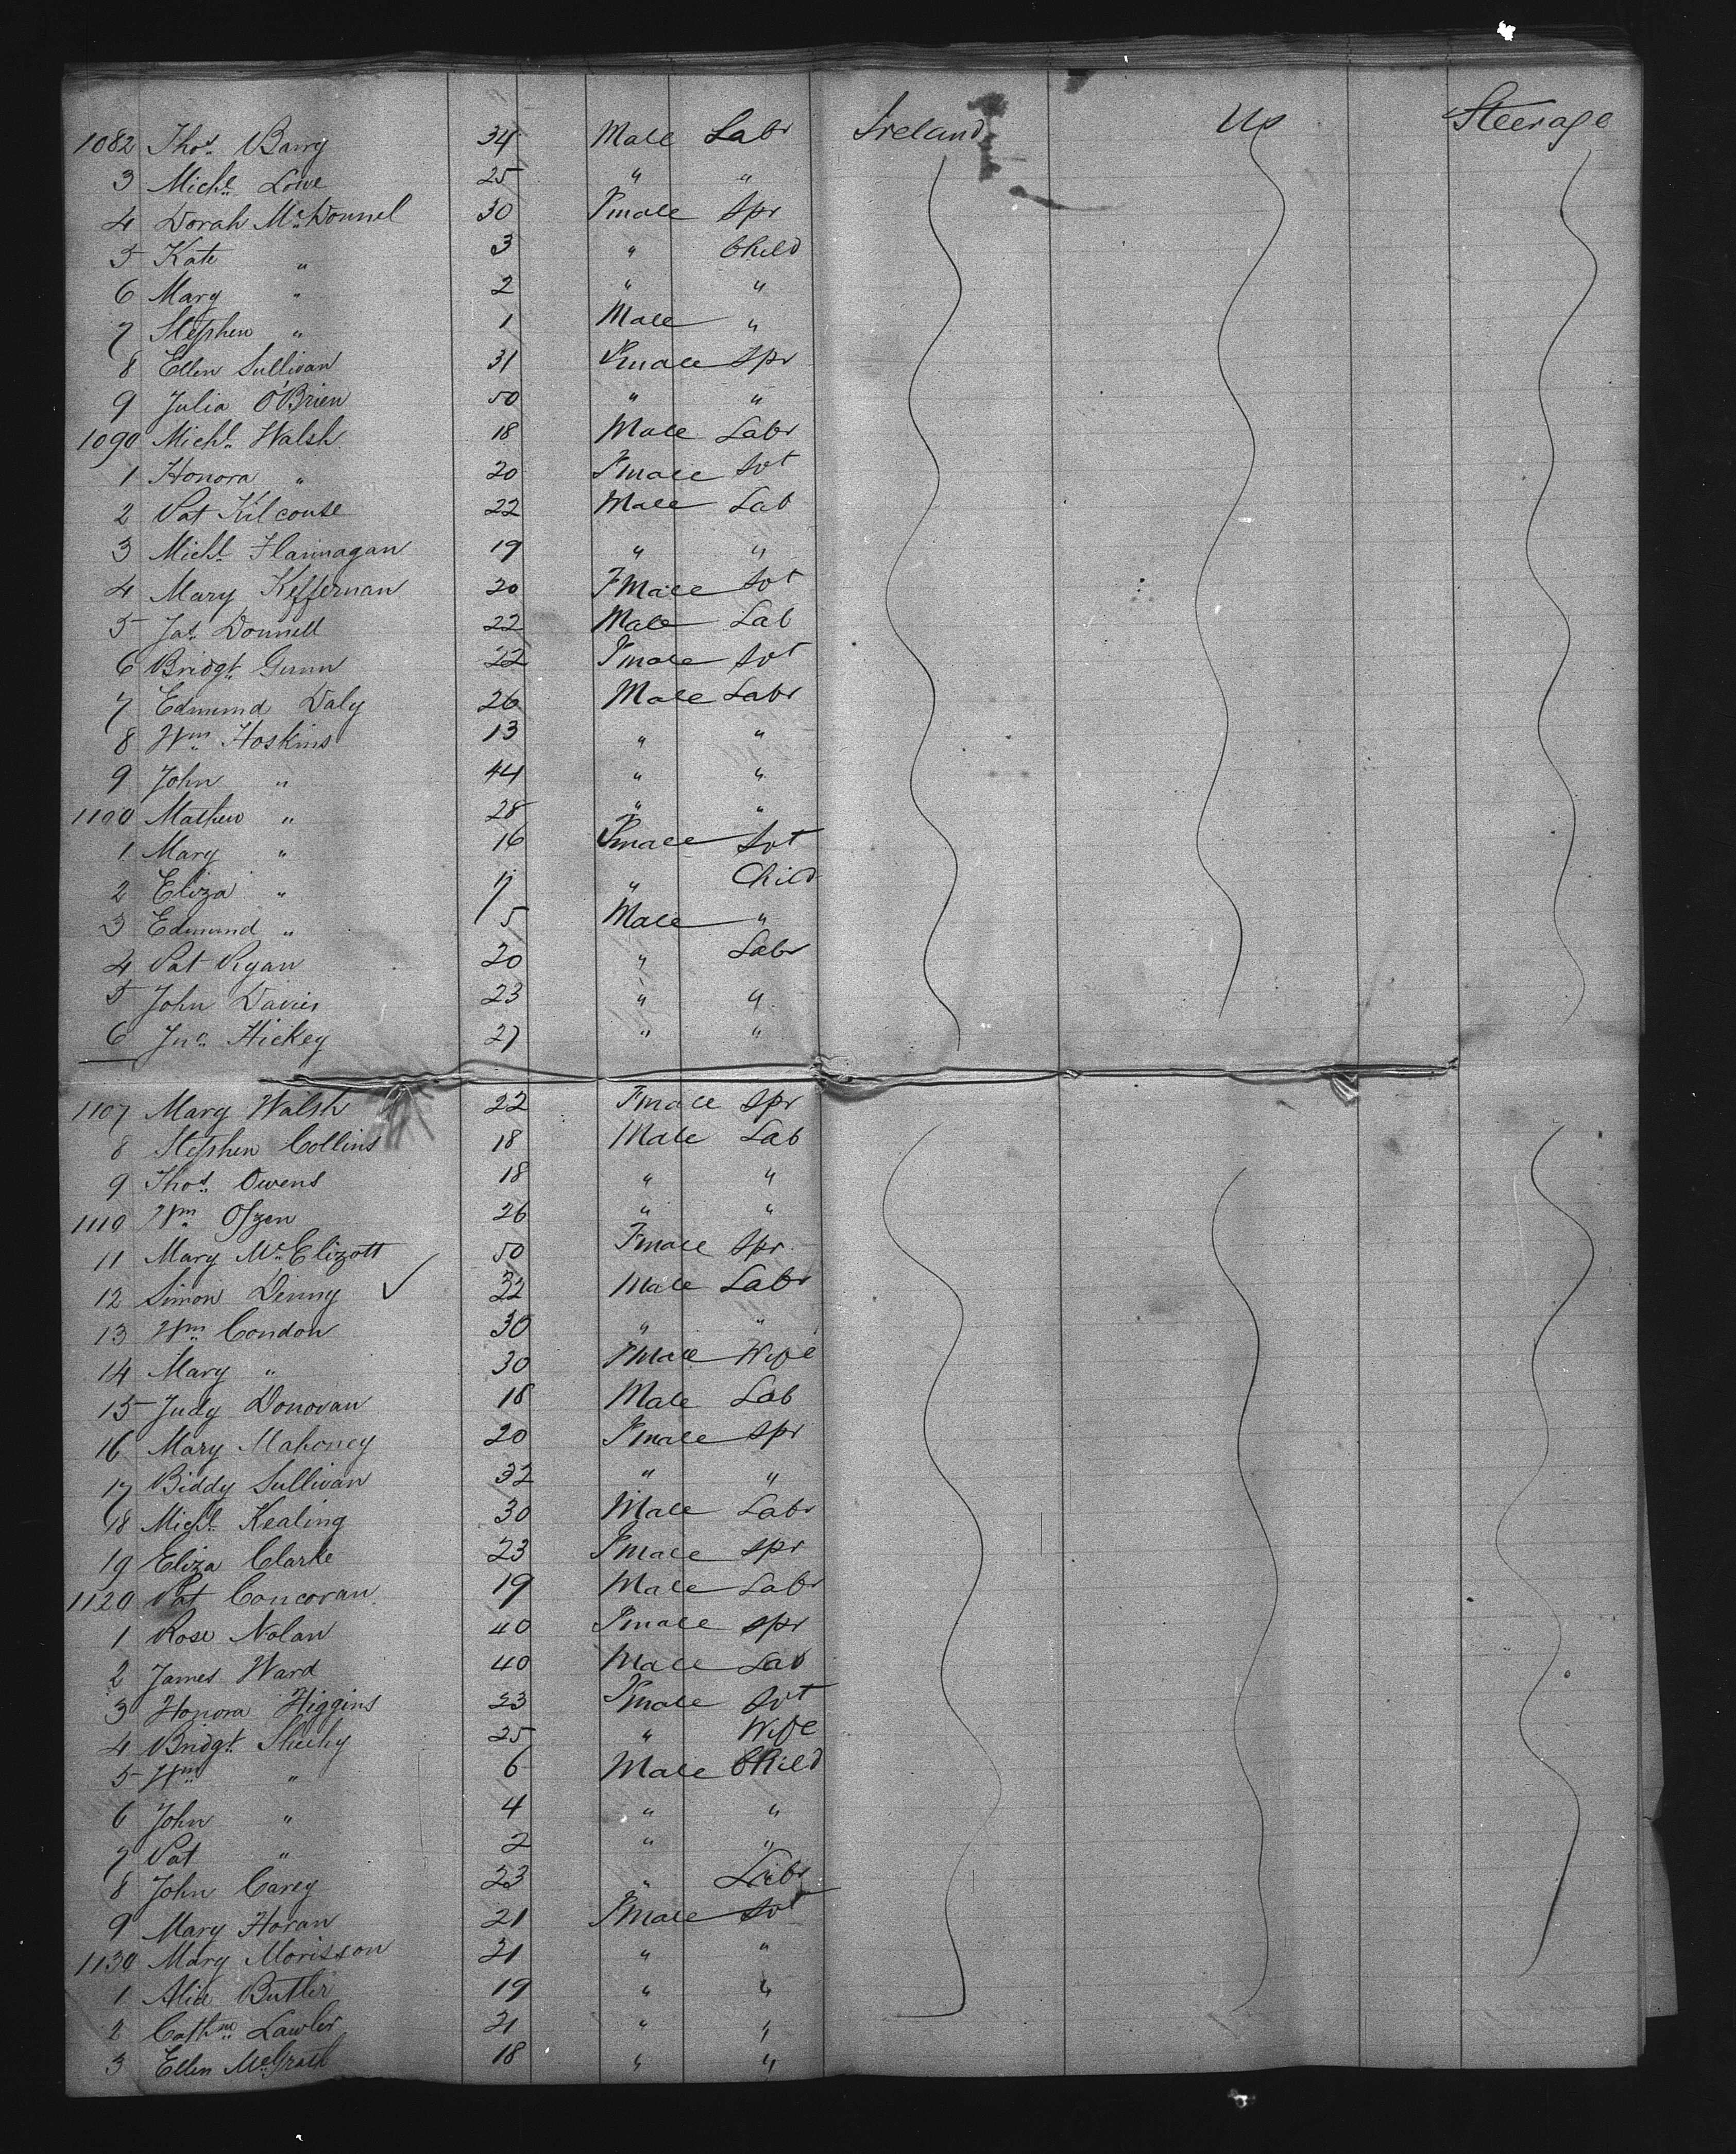 1082 Thos Barry 34 Male Labr Ireland US Steerage
3 Michl Lowe 25 " "
4 Dorah McDonnel 30 Fmale Spr
5 Kate " 3 " Child
6 Mary " 2 " "
7 Stephen " 1 Male "
8 Ellen Sullivan 31 Fmale Spr
9 Julia O'Brien 50 " "
1090 Michl Walsh 18 Male Labr
1 Honora " 20 Fmale Svt
2 Pat Kilcouse 22 Male Lab
3 Michl Flannagan 19 " "
4 Mary Heffernan 20 FMale Svt
5 Jas Donnell 22 Male Lab
6 Bridgt Gunn 22 Fmale Svt
7 Edmund Daly 26 Male Labr
8 Wm Hoskins 13 " "
9 John " 44 " "
1100 Mathew " 28 " "
1 Mary " 16 Fmale Svt
2 Eliza " " Child
3 Edmund " 5 Male "
4 Pat Ryan 20 " Labr
5 John Davies 23 " "
6 Jno Hickey 27 " "
1107 Mary Walsh 22 Fmale Spr
8 Stephen Collins 18 Male Lab
9 Thos Owens 18 " "
1110 Wm 26 " "
11 Mary McElizott 50 Fmale Spr
12 Simon Denny ✓ 32 Male Labr
13 Wm Condon 30 " "
14 Mary " 30 FMale Wife
15 Judy Donovan 18 Male Lab
16 Mary Mahoney 20 Fmale Spr
17 Biddy Sullivan 32 " "
18 Michl Kealing 30 Male Labr
19 Eliza Clarke 23 Fmale Spr
1120 Pat Concoran 19 Male Labr
1 Rose Nolan 40 Fmale Spr
2 James Ward 40 Male Lab
3 Honora Higgins 23 Fmale Svt
4 Bridgt Sheehy 25 " Wife
5 Wm " 6 Male Child
6 John " 4 " "
7 Pat " 2 " "
8 John Carey 23 " Labr
9 Mary Horan 21 FMale Svt
1130 Mary Morisson 21 " "
1 Alice Butler 19 " "
2 Cathne Lawler 21 " "
3 Ellen McGrath 18 " "